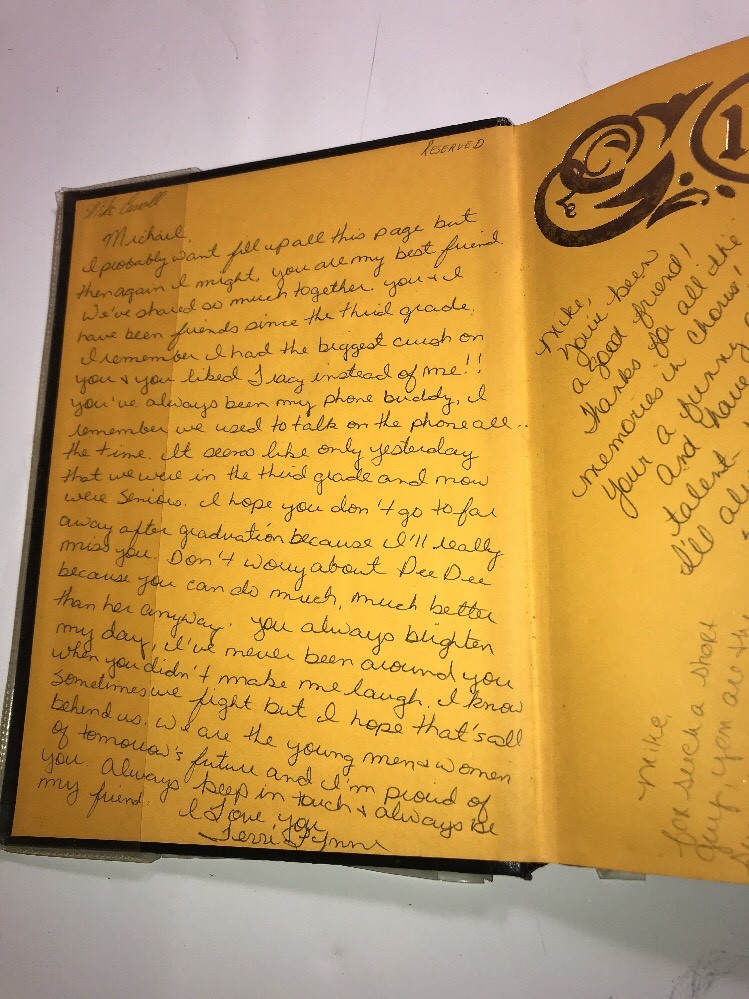 RESERVED
Michael,
I probably want fill up all this page but
then again I might. you are my best friend.
We've shared so much together. you & I
have been friends since the third grade.
I remember I had the biggest crush on
you & you liked Tracy instead of me!!
you've always been my phone buddy, I
remember we used to talk on the phone all..
the time. It seems like only yesterday
that we were in the third grade and now
were Seniors. I hope you don't go to far
away after graduation because I'll really
miss you. Don't worry about Dee Dee
because you can do much, much better
than her anyway. you always brighten
my day, I've never been around you
when you didn't make me laugh. I know
Sometimes we fight but I hope that's all
behind us. We are the young men & women
of tomorrow's future and I'm proud of
you. Always keep in touch & always be
my friend.
I Love you
Terri Lynn
Mike,
your been
a good friend!
Thanks for all the
memories in chorus!
your a funny
and have
talent-
I'll al
Mike,
for such a short
guy, you are th